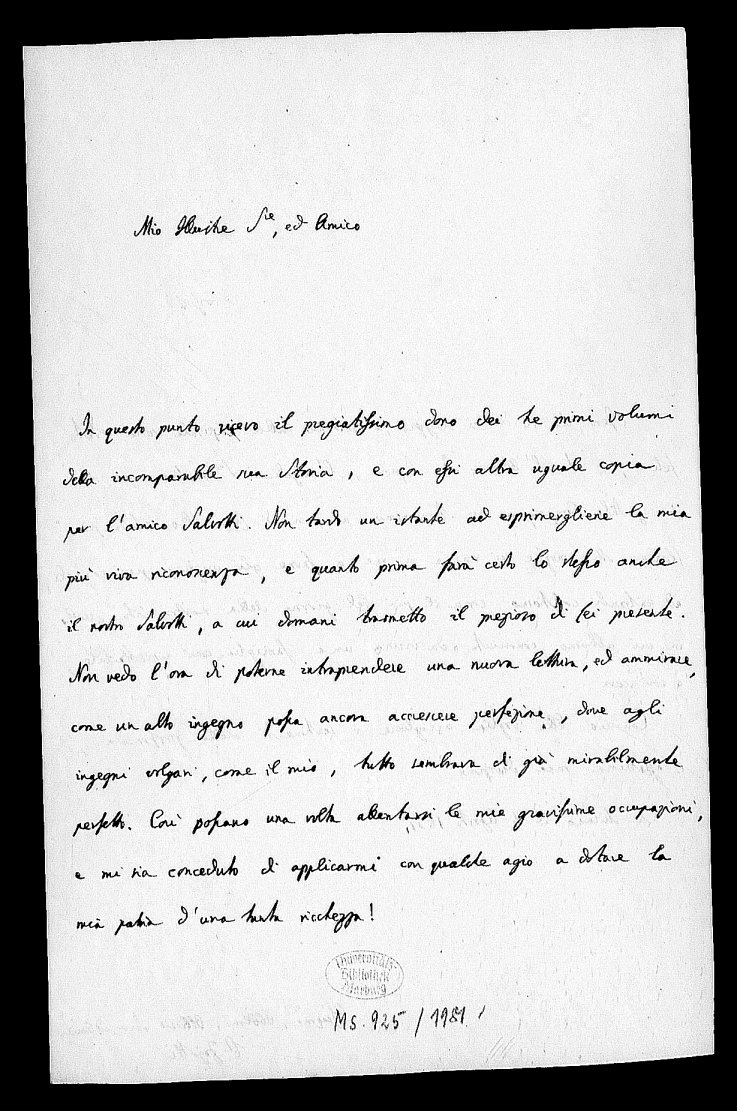 Mio Illustre Sre, ed Amico
In questo punto ricevo il pregiatissimo dono dei tre primi volumi
della incomparabile sua Storia, e con essi altra uguale copia
per l'amico Salvotti. Non tardo un istante ad esprimergliene la mia
più viva riconoscenza, e quanto prima farà certo lo stesso anche
il nostro Salvotti, a cui domani trasmetto il prezioso di Lei presente.
Non vedo l'ora di poterne intraprendere una nuova lettura, ed ammirare,
come un alto ingegno possa ancora accrescere perfezione, dove agli
ingegni volgari, come il mio, tutto sembrava di già mirabilmente
perfetto. Così possano una volta allentarsi le mie gravissime occupazioni,
e mi sia conceduto di applicarmi con qualche agio a dotare la
mia patria d'una tanta ricchezza!
Universitäts-
Bibliothek
Marburg
Ms. 925 / 1981